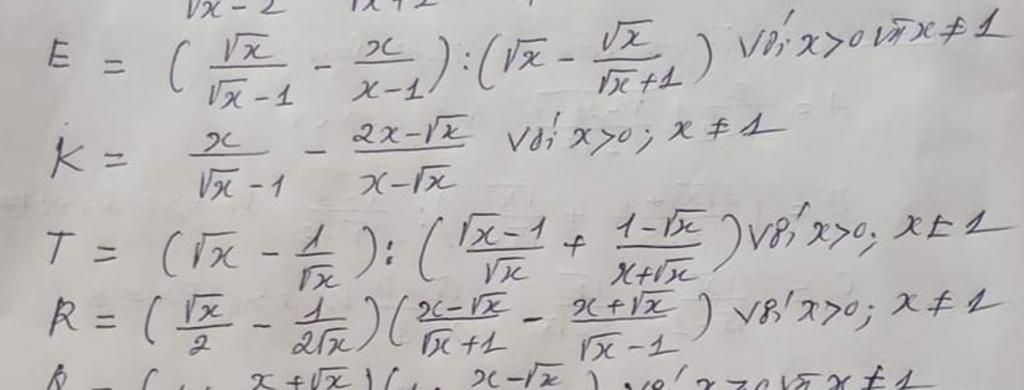 √x - 2 √x + 2
E = ( √x / (√x - 1) - x / (x - 1) ) : ( √x - √x / (√x + 1) ) với x > 0 và x ≠ 1
K = x / (√x - 1) - (2x - √x) / (x - √x) với x > 0 ; x ≠ 1
T = ( √x - 1 / √x ) : ( (√x - 1) / √x + (1 - √x) / (x + √x) ) với x > 0 ; x ≠ 1
R = ( √x / 2 - 1 / (2√x) ) ( (x - √x) / (√x + 1) - (x + √x) / (√x - 1) ) với x > 0 ; x ≠ 1
x + √x ) ( x - √x ) với x > 0 và x ≠ 1